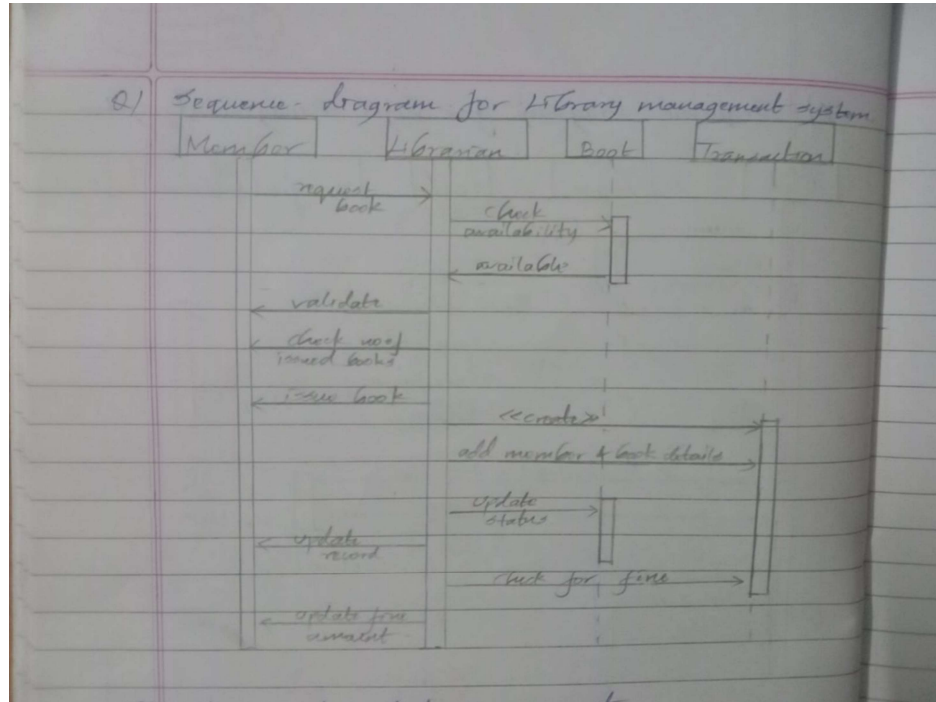 Q) Sequence - diagram for Library management system
Member Librarian Book Transaction
request
book
check
availability
available
validate
check no of
issued books
issue book
<<create>>
add member & book details
update
status
update
record
check for fine
update fine
amount